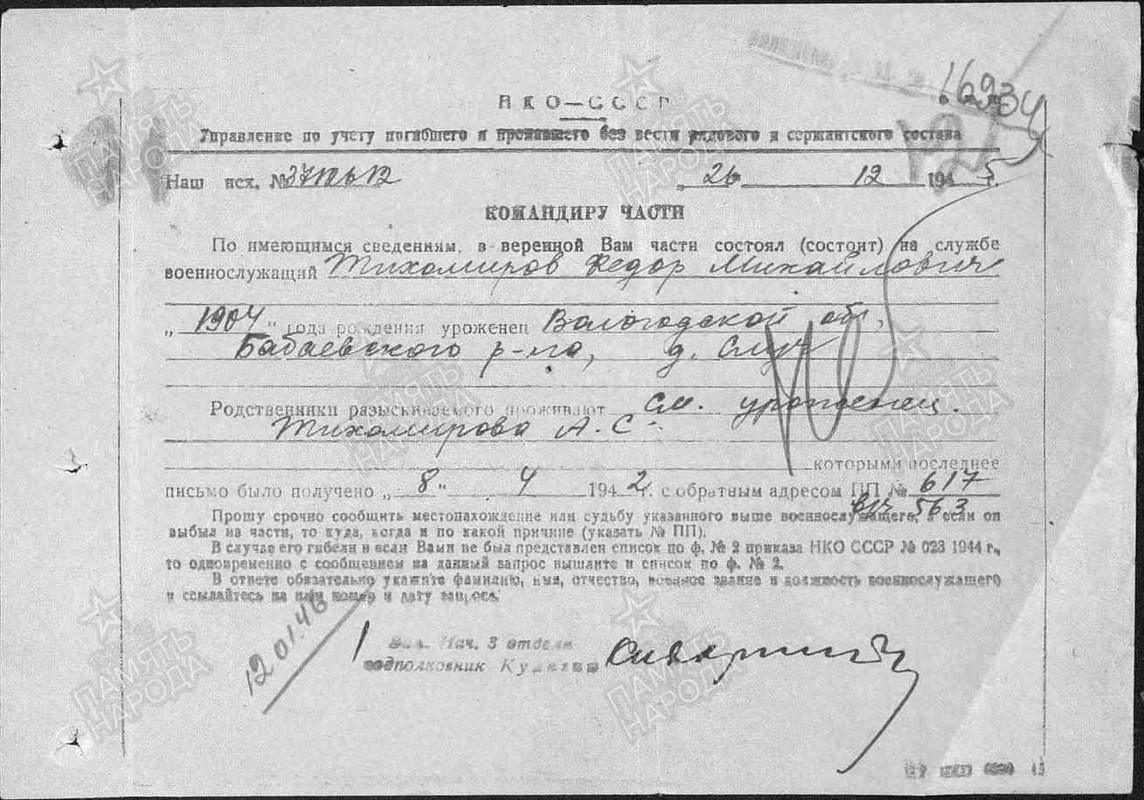 16934
НКО—СССР
Управление по учету погибшего и пропавшего без вести рядового и сержантского состава
Наш исх. №
„ 26 12 194 5 г.
КОМАНДИРУ ЧАСТИ
По имеющимся сведениям, в веренной Вам части состоял (состоит) на службе
военнослужащий Тихомиров Федор Михайлович
„ 1904 " года рождения уроженец Вологодской обл,
Бабаевского р-на, д. Слуц
Родственники разыскиваемого проживают См. уроженец.
Тихомирова А. С.
которыми последнее
письмо было получено „ 8 " 4 194 2 г. с обратным адресом ПП № 617
в/ч 563
Прошу срочно сообщить местонахождение или судьбу указанного выше военнослужащего, а если он
выбыл из части, то куда, когда и по какой причине (указать № ПП).
В случае его гибели и если Вами не был представлен список по ф. № 2 приказа НКО СССР № 023 1944 г.,
то одновременно с сообщением на данный запрос вышлите и список по ф. № 2.
В ответе обязательно укажите фамилию, имя, отчество, военное звание и должность военнослужащего
и ссылайтесь на наш номер и дату запроса.
12 01.46
Зам. Нач. 3 отдела
подполковник
ПАМЯТЬ НАРОДА